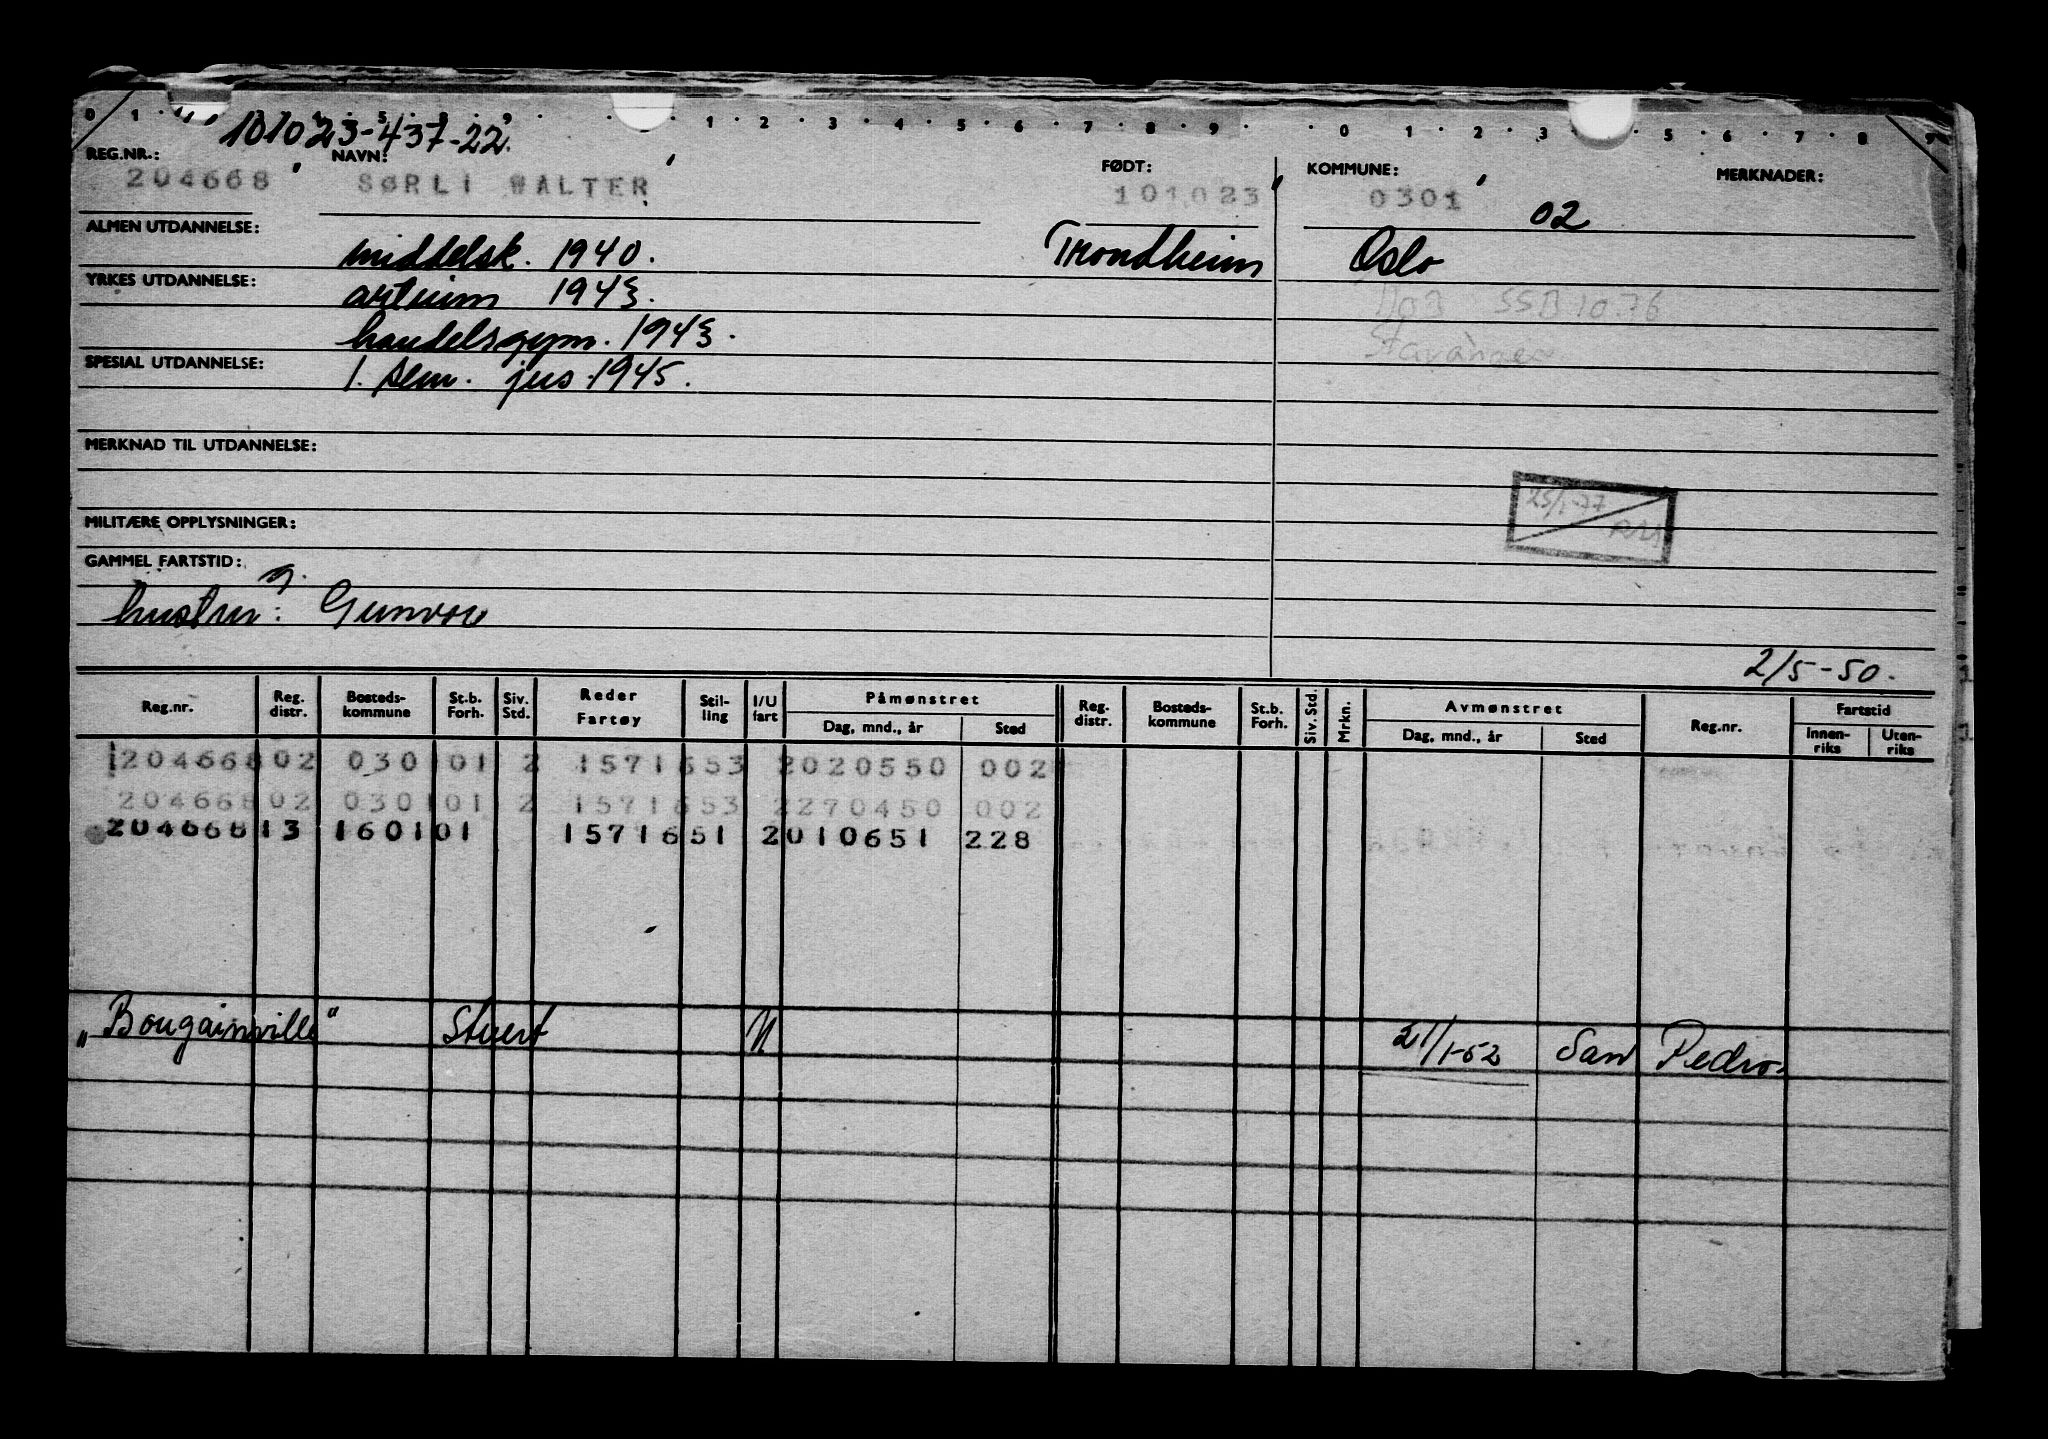 0 1 1 2 3 4 5 6 7 8 9 0 1 2 3 5 6 7 8 9
101023-43722
REG.NR.: NAVN: FØDT: KOMMUNE: MERKNADER:
204668 SØRLI WALTER 101023 0301
02
ALMEN UTDANNELSE: middelsk. 1940. Trondheim Oslo
YRKES UTDANNELSE: artium 1943. SSB 10.76
handelsgym. 1943. Stavanger
SPESIAL UTDANNELSE: 1. sem. jus 1945.
MERKNAD TIL UTDANNELSE:
25/1-77
MILITÆRE OPPLYSNINGER:
GAMMEL FARTSTID:
g.
hustru: Gunvor
2/5-50.
Reg.nr. Reg. distr. Bosteds-kommune St.b. Forh. Siv. Std. Reder Fartøy Stil-ling I/U fart Påmønstret Dag, mnd., år Sted Reg. distr. Bosteds-kommune St.b. Forh. Siv. Std. Mrkn. Avmønstret Dag, mnd., år Sted Reg.nr. Fartstid Innen-riks Uten-riks
204668 02 0301 01 2 1571653 2020550 002
204668 02 0301 01 2 1571653 2270450 002
204668 13 1601 01 1571651 2010651 228
"Bougainville" Stuert U 21/1-52 San Pedro.